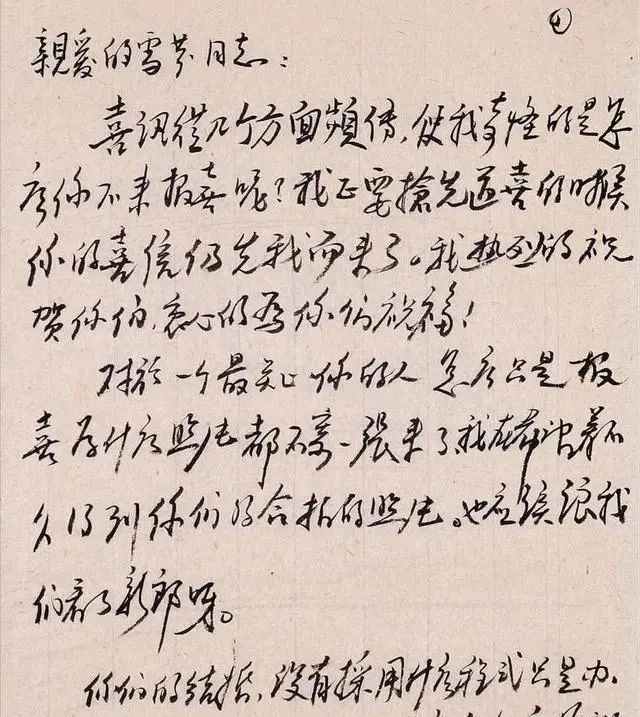 ①
親爱的雪芬同志：
喜讯從几个方面頻傳，使我奇怪的是怎
么你不来报喜呢？我正要搶先道喜的时候
你的喜信仍先我而来了。我热烈的祝
贺你们，衷心的為你们祝福！
对於一个最关心你的人怎么只是报
喜为什么照片都不寄一張来了，我在希望着不
久得到你们的合拍的照片。也应该讓我
们看了新郎呀。
你们的结婚，没有採用什么程式只是办